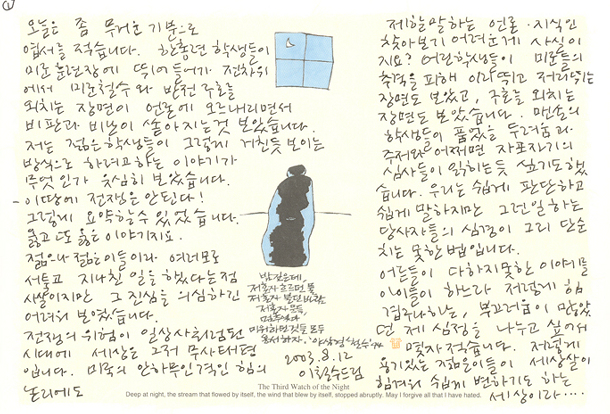 ①
오늘은 좀 무거운 기분으로
엽서를 적습니다. 한총련 학생들이
미군훈련장에 뛰어들어가 전차위
에서 미군철수와 반전 구호를
외치는 장면이 언론에 오르내리면서
비판과 비난이 쏟아지는것 보았습니다.
저는 젊은학생들이 그렇게 거칠듯 보이는
방식으로 하려고하는 이야기가
무엇인가 유심히 보았습니다.
이땅에 전쟁은 안된다!
그렇게 요약할수 있었습니다.
옳고 또 옳은 이야기지요.
젊으나 젊은이들이라 여러모로
서툴고 지나친 일을 했다는점
사실이지만 그 진심을 의심하긴
어려워 보였습니다.
전쟁의 위험이 일상사처럼된
시대에 세상은 그저 무사태평
입니다. 미국의 안하무인격인 힘의
논리에도
밤깊은데,
저혼자 흐르던 물
저혼자 불던 바람
저혼자
미워하던것들 모두
용서하자. '야삼경' 철수
2003. 8. 12
이철수드림
The Third Watch of the Night
Deep at night, the stream that flowed by itself, the wind that blew by itself, stopped abruptly. May I forgive all that I have hated.
제할말하는 언론·지식인
찾아보기 어려운게 사실이
지요? 어린학생들이 미군들의
추격을 피해 이리뛰고 저리뛰는
장면도 보았고, 구호를 외치는
장면도 보았습니다. 맨손의
학생들이 품었을 두려움과
주저와 어쩌면 자포자기의
심사들이 읽히는듯 싶기도했
습니다. 우리는 쉽게 판단하고
쉽게 말하지만 그런일하는
당사자들의 심경이 그리 단순
치는 못한법입니다.
어른들이 다하지못한 이야기를
아이들이 하느라 저렇게 힘
겨워하는, 부끄러움이 많았
던 제 심정을 나누고 싶어서
몇자 적습니다. 저렇게
용기있는 젊은이들이 세상살이
힘겨워 쉽게 변하기도 하는
세상이라····